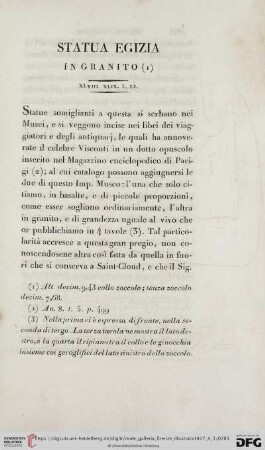 STATUA EGIZIA
IN GRANITO (1)
XLVIII. XLIX. L. LI.
Statue somiglianti a questa si serbano nei
Musei, e si veggono incise nei libri dei viag-
giatori e degli antiquarj, le quali ha annove-
rate il celebre Visconti in un dotto opuscolo
inserito nel Magazzino enciclopedico di Pari-
gi (2); al cui catalogo possono aggiungersi le
due di questo Imp. Museo: l'una che solo ci-
tiamo, in basalte, e di piccole proporzioni,
come esser sogliono ordinariamente, l'altra
in granito, e di grandezza uguale al vivo che
or pubblichiamo in 4 tavole (3). Tal partico-
larità accresce a questa gran pregio, non co-
noscendosene altra così fatta da quella in fuo-
ri che si conserva a Saint-Cloud, e che il Sig.
(1) Alt. decim. 9,43 collo zoccolo; senza zoccolo
decim. 7,68.
(2) An. 8. t. 5. p. 499
(3) Nella prima ci è espressa di fronte, nella se-
conda di tergo. La terza tavola ne mostra il lato de-
stro, e la quarta il ripiano tra il collo e le ginocchia
insieme coi geroglifici del lato sinistro dello zoccolo.
UNIVERSITÄTS-
BIBLIOTHEK
HEIDELBERG
DFG